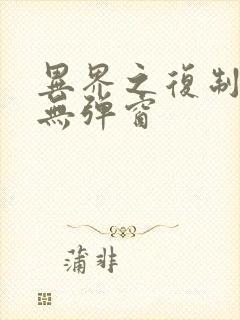 異界之復制
無彈窗
蒲非